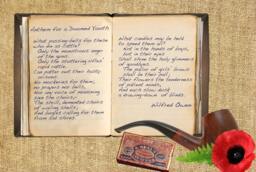 Anthem for a Doomed Youth
What passing-bells for these
who die as cattle?
Only the monstrous anger
of the guns.
Only the stuttering rifles'
rapid rattle
Can patter out their hasty
orisons.
No mockeries for them;
no prayers nor bells,
Nor any voice of mourning
save the choirs,-
The shrill, demented choirs
of wailing shells;
And bugles calling for them
from sad shires.
What candles may be held
to speed them all?
Not in the hands of boys,
but in their eyes
Shall shine the holy glimmers
of goodbyes.
The pallor of girls' brows
shall be their pall;
Their flowers the tenderness
of patient minds,
And each slow dusk
a drawing-down of blinds.
Wilfred Owen